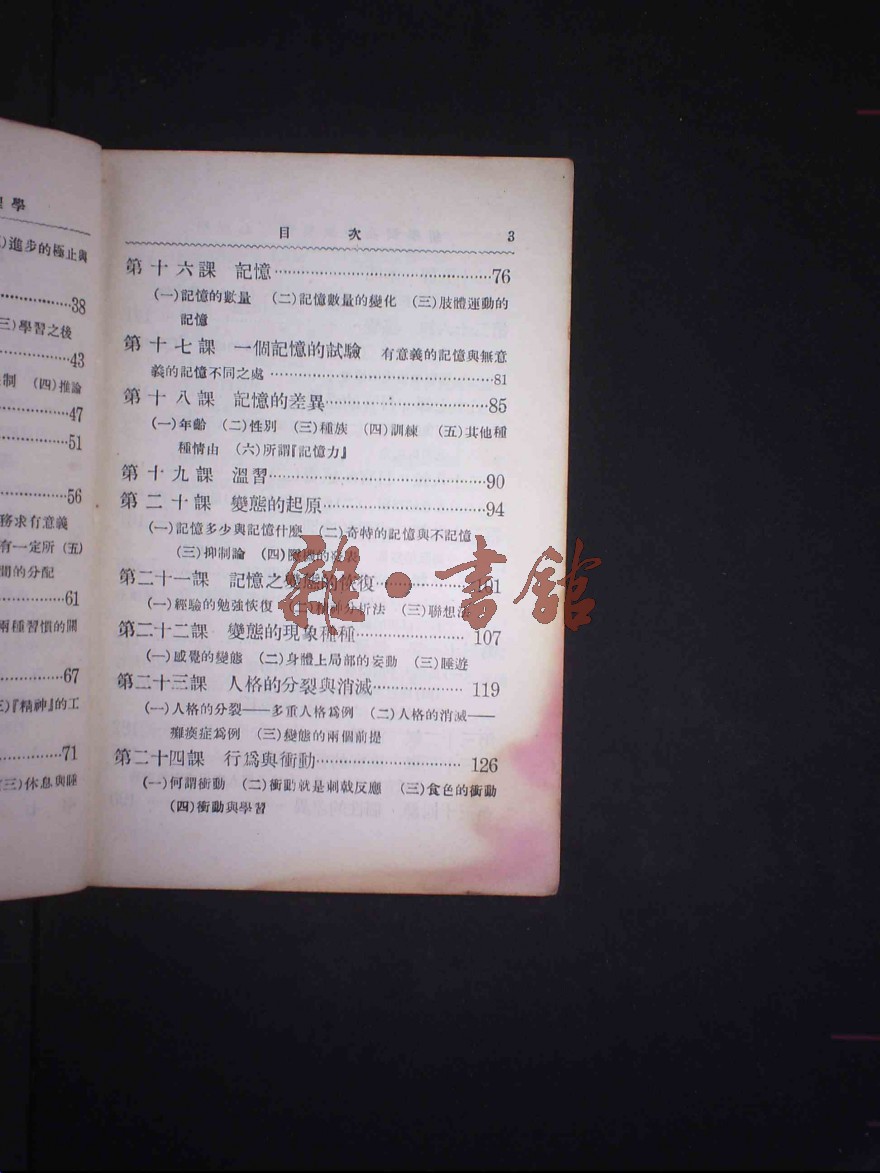 學
進步的極止與
38
三)學習之後
43
制 (四)推論
47
51
56
務求有意義
有一定所 (五)
間的分配
61
兩種習慣的關
67
)『精神』的工
71
(三)休息與睡
目 次 3
第十六課 記憶……76
(一)記憶的數量 (二)記憶數量的變化 (三)肢體運動的
記憶
第十七課 一個記憶的試驗 有意義的記憶與無意
義的記憶不同之處……81
第十八課 記憶的差異……85
(一)年齡 (二)性別 (三)種族 (四)訓練 (五)其他種
種情由 (六)所謂『記憶力』
第十九課 溫習……90
第二十課 變態的起原……94
(一)記憶多少與記憶什麼 (二)奇特的記憶與不記憶
(三)抑制論 (四)
第二十一課 記憶之變態的恢復……101
(一)經驗的勉強恢復 (二)精神分析法 (三)聯想法
第二十二課 變態的現象種種……107
(一)感覺的變態 (二)身體上局部的妄動 (三)睡遊
第二十三課 人格的分裂與消滅……119
(一)人格的分裂——多重人格爲例 (二)人格的消滅——
癱瘓症爲例 (三)變態的兩個前提
第二十四課 行爲與衝動……126
(一)何謂衝動 (二)衝動就是刺戟反應 (三)食色的衝動
(四)衝動與學習
雜·書館